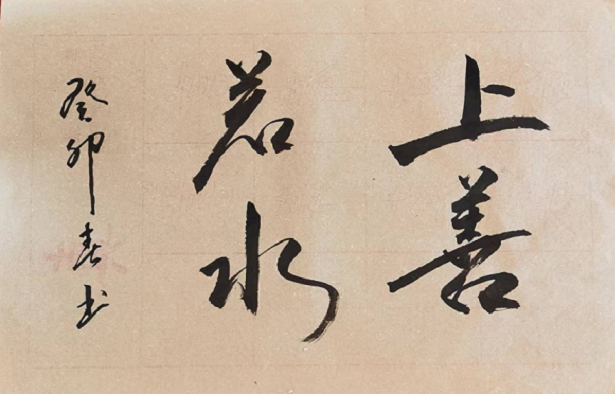 上善
若水
癸卯春书